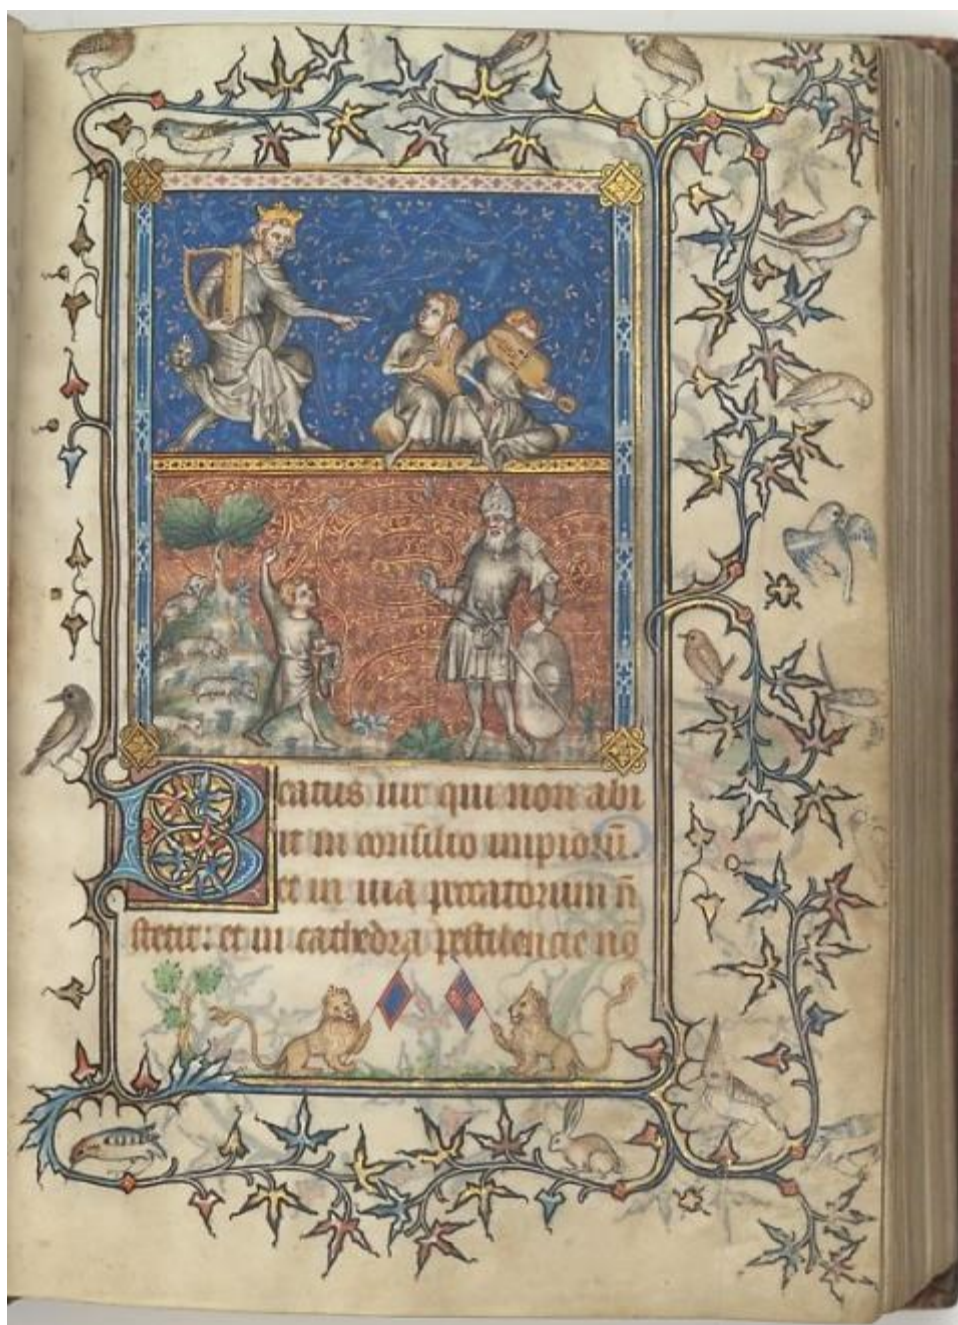 Beatus uir qui non abi
it in consilio impioru̅.
et in uia peccatorum n̅
stetit: et in cathedra pestilencie no̅